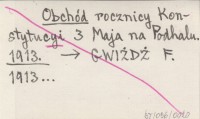 Obchód rocznicy Kon-
stytucyi 3 Maja na Podhalu.
1913. → GWIŻDŻ F.
1913...